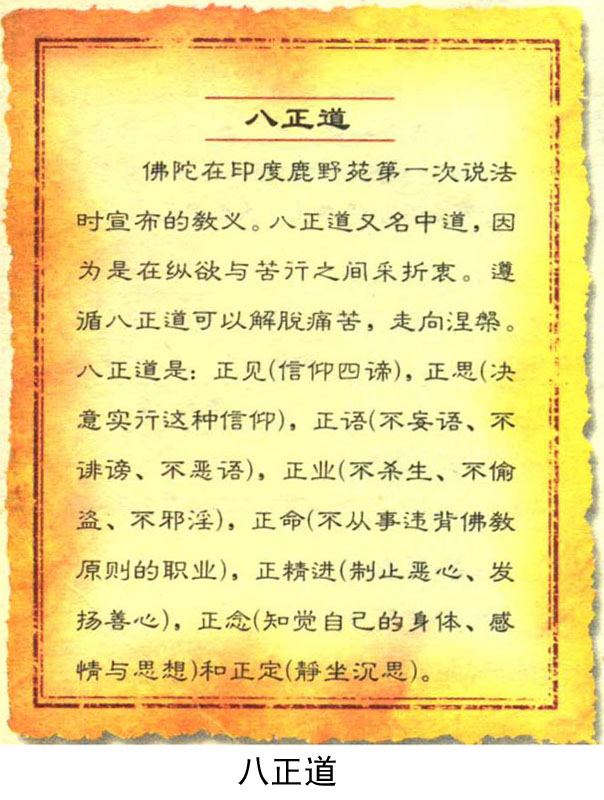 八正道
佛陀在印度鹿野苑第一次说法
时宣布的教义。八正道又名中道，因
为是在纵欲与苦行之间采折衷。遵
循八正道可以解脱痛苦，走向涅槃。
八正道是：正见(信仰四谛)，正思(决
意实行这种信仰)，正语(不妄语、不
诽谤、不恶语)，正业(不杀生、不偷
盗、不邪淫)，正命(不从事违背佛教
原则的职业)，正精进(制止恶心、发
扬善心)，正念(知觉自己的身体、感
情与思想)和正定(静坐沉思)。
八正道